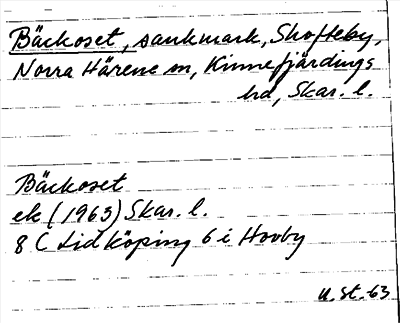 Bäckoset, sankmark, Skofteby,
Norra Härene sn, Kinnefjärdings
hd, Skar. l.
Bäckoset
ek (1963) Skar. l.
8 C Lidköping 6 i Hovby
u. st. 63